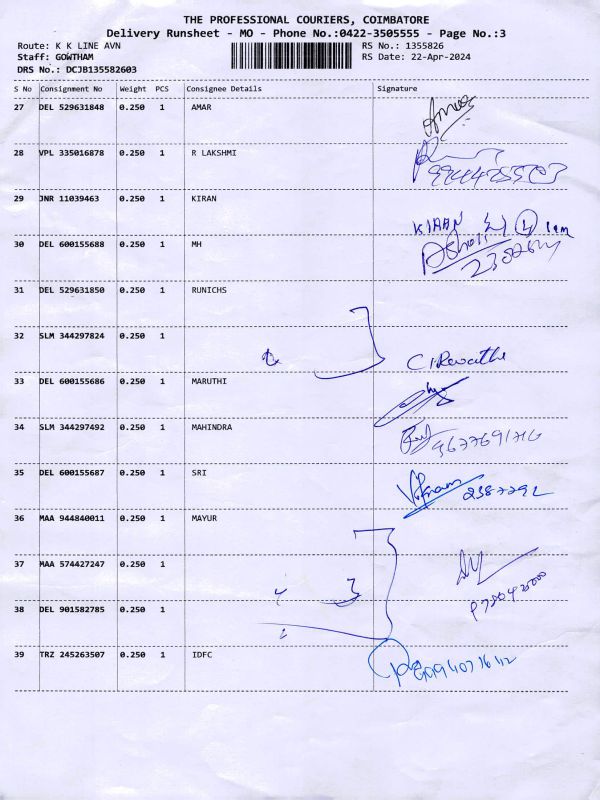 THE PROFESSIONAL COURIERS, COIMBATORE
Delivery Runsheet - MO - Phone No.:0422-3505555 - Page No.:3
Route: K K LINE AVN RS No.: 1355826
Staff: GOWTHAM RS Date: 22-Apr-2024
DRS No.: DCJB135582603
S No Consignment No Weight PCS Consignee Details Signature
27 DEL 529631848 0.250 1 AMAR
28 VPL 335016878 0.250 1 R LAKSHMI
29 JNR 11039463 0.250 1 KIRAN
KIRAN
30 DEL 600155688 0.250 1 MH
31 DEL 529631850 0.250 1 RUNICHS
32 SLM 344297824 0.250 1
33 DEL 600155686 0.250 1 MARUTHI
34 SLM 344297492 0.250 1 MAHINDRA
35 DEL 600155687 0.250 1 SRI
36 MAA 944840011 0.250 1 MAYUR
37 MAA 574427247 0.250 1
38 DEL 901582785 0.250 1
39 TRZ 245263507 0.250 1 IDFC